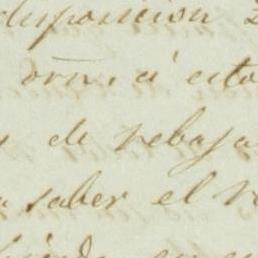 disposicion
orn. á esto
de rebaja
saber el r